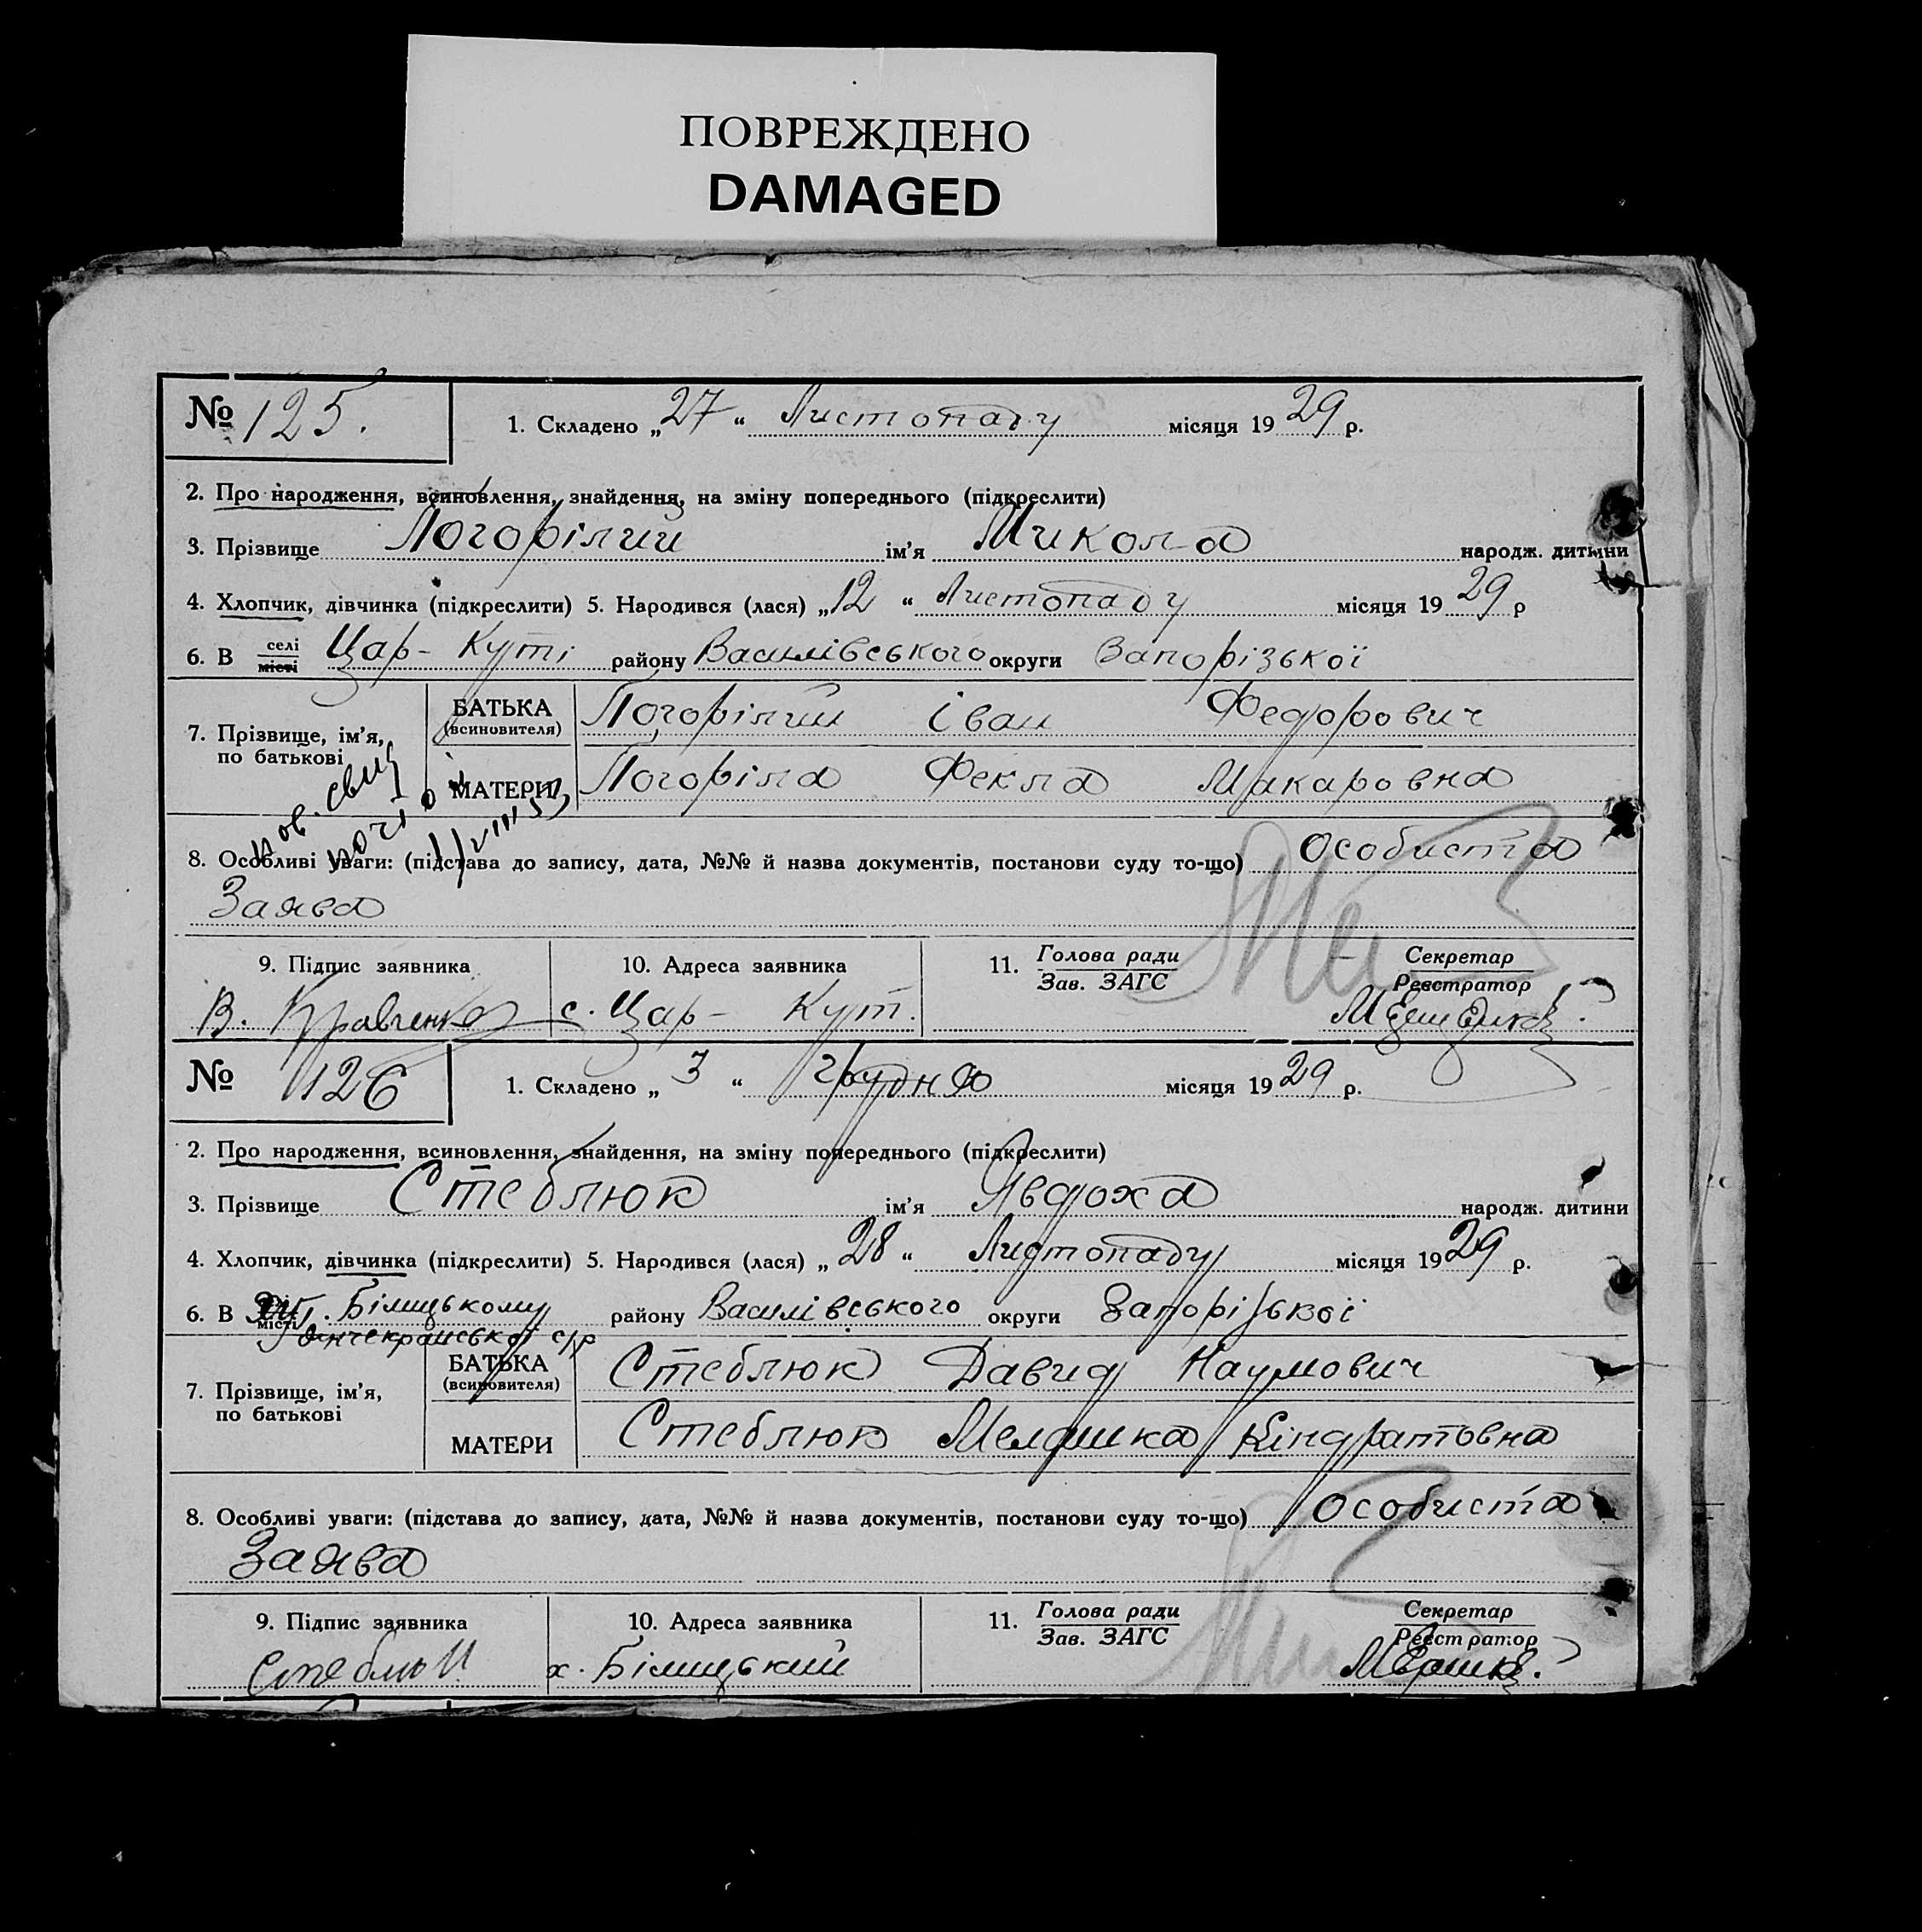 ПОВРЕЖДЕНО
DAMAGED
№ 125. 1. Складено „27“ Листопаду місяця 1929 р.
2. Про народження, всиновлення, знайдення, на зміну попереднього (підкреслити)
3. Прізвище Погорілий ім'я Микола народж. дитини
4. Хлопчик, дівчинка (підкреслити) 5. Народився (лася) „12“ Листопаду місяця 1929 р
6. В селі місті Цар-Куті району Василівського округи Запорізької
БАТЬКА (всиновителя) Погорілий Іван Федорович
7. Прізвище, ім'я, по батькові
МАТЕРИ Погоріла Фекла Макаровна
пов. свид
8. Особливі уваги: (підстава до запису, дата, №№ й назва документів, постанови суду то-що) Особиста
Заява
9. Підпис заявника 10. Адреса заявника 11. Голова ради Зав. ЗАГС Секретар Реєстратор
В. Кравченко с. Цар-Кут.
№ 126 1. Складено „3“ грудня місяця 1929 р.
2. Про народження, всиновлення, знайдення, на зміну попереднього (підкреслити)
3. Прізвище Стеблюк ім'я Явдоха народж. дитини
4. Хлопчик, дівчинка (підкреслити) 5. Народився (лася) „28“ Листопаду місяця 1929 р.
6. В місті Білицькому району Василівського округи Запорізької
с/р
БАТЬКА (всиновителя) Стеблюк Давид Наумович
7. Прізвище, ім'я, по батькові
МАТЕРИ Стеблюк Меланка Кіндратовна
8. Особливі уваги: (підстава до запису, дата, №№ й назва документів, постанови суду то-що) Особиста
Заява
9. Підпис заявника 10. Адреса заявника 11. Голова ради Зав. ЗАГС Секретар Реєстратор
Стеблюк х. Білицький